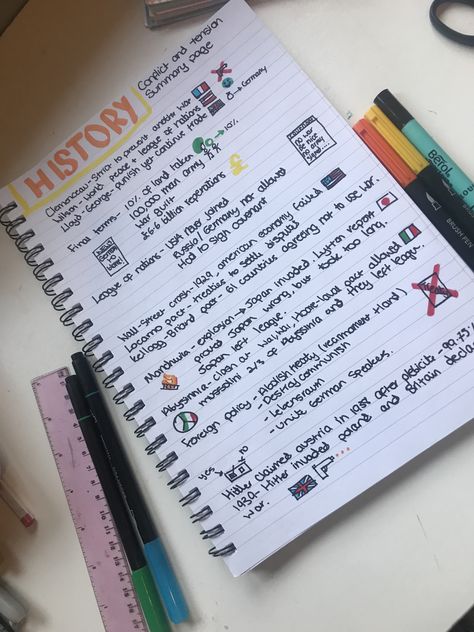 HISTORY
Conflict and tension
Summary page
Clemanceau-Strict to prevent another war
Wilson - World peace + league of nations
Lloyd-George-punish yet continue trade
→ Germany
Final terms - 10% of land taken → 10%
100,000 men army
War guilt
£6.6 billion reperations £
League of nations - USA never joined
Russia/Germany not allowed
Had to sign covenant
no war
be nice
no army
Wall-street crash-1929, american economy failed
Locarno pact - treatise to settle disputes
Kellogg Briand pact - 61 countries agreeing not to use war.
Manchuria - explosion → Japan invaded. Lytton report
proved Japan wrong, but took too long.
Japan left league.
Abyssinia - clash at Wal, Hoare-Laval pact allowed
mussolini 2/3 of Abyssinia and they left league.
Foreign policy - Abolish treaty (rearmament + land)
- Destroy communism
- Lebensraum
- Unite German speakers.
yes no
Hitler claimed austria in 1938 after plebicite 99.75%
1939-Hitler invaded poland and Britain declared
war.
Berol
BRUSH PEN